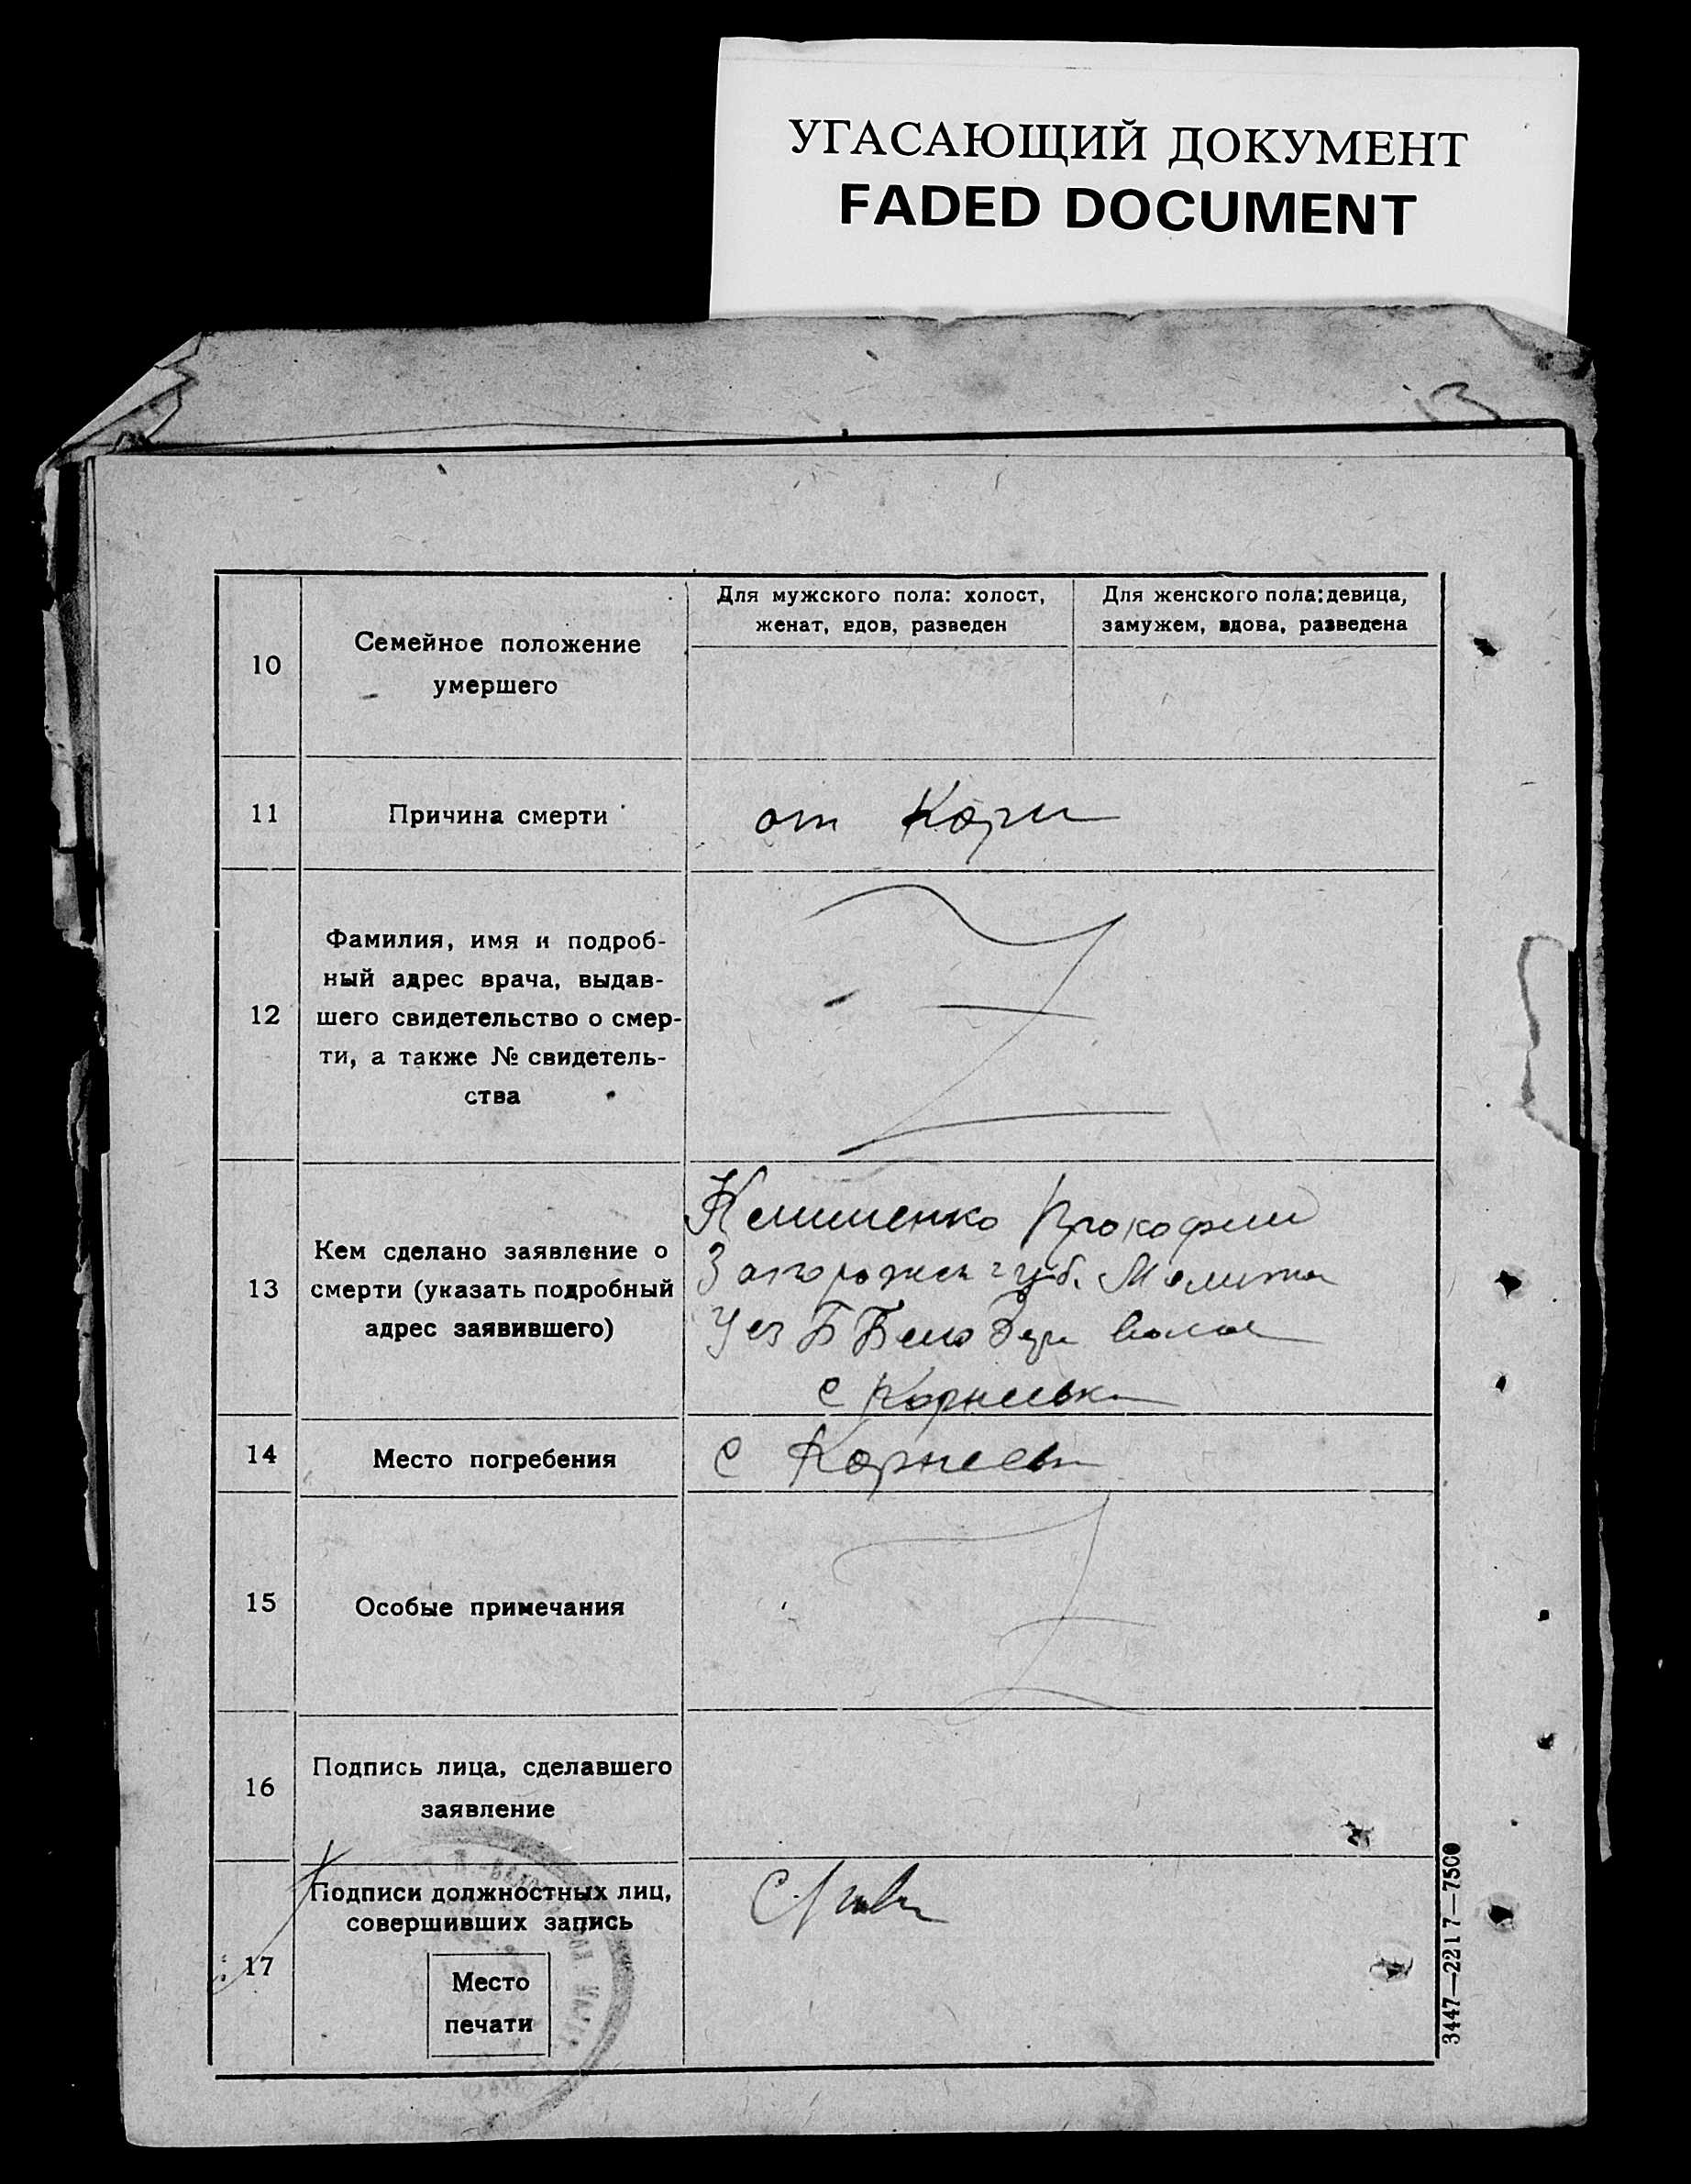 УГАСАЮЩИЙ ДОКУМЕНТ
FADED DOCUMENT
10
Семейное положение
умершего
Для мужского пола: холост,
женат, вдов, разведен
Для женского пола: девица,
замужем, вдова, разведена
11
Причина смерти
от Кори
12
Фамилия, имя и подроб-
ный адрес врача, выдав-
шего свидетельство о смер-
ти, а также № свидетель-
ства
13
Кем сделано заявление о
смерти (указать подробный
адрес заявившего)
Прокофий
губ.
Уез Б
с
14
Место погребения
с
15
Особые примечания
16
Подпись лица, сделавшего
заявление
17
Подписи должностных лиц,
совершивших запись
Место
печати
3447—2217—7500